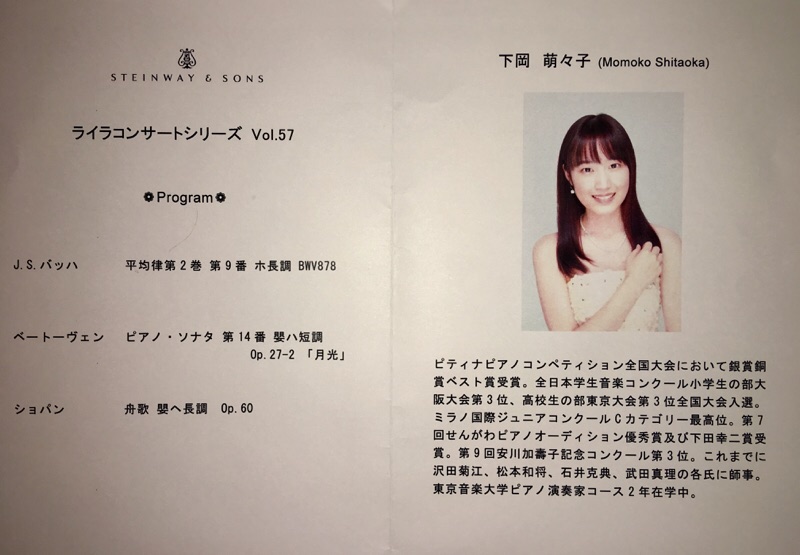 STEINWAY & SONS
ライラコンサートシリーズ Vol.57
❁Program❁
J.S.バッハ 平均律第2巻 第9番 ホ長調 BWV878
ベートーヴェン ピアノ・ソナタ 第14番 嬰ハ短調
Op.27-2 「月光」
ショパン 舟歌 嬰ヘ長調 Op.60
下岡 萌々子 (Momoko Shitaoka)
ピティナピアノコンペティション全国大会において銀賞銅
賞ベスト賞受賞。全日本学生音楽コンクール小学生の部大
阪大会第3位、高校生の部東京大会第3位全国大会入選。
ミラノ国際ジュニアコンクールCカテゴリー最高位。第7
回せんがわピアノオーディション優秀賞及び下田幸二賞受
賞。第9回安川加壽子記念コンクール第3位。これまでに
沢田菊江、松本和将、石井克典、武田真理の各氏に師事。
東京音楽大学ピアノ演奏家コース2年在学中。